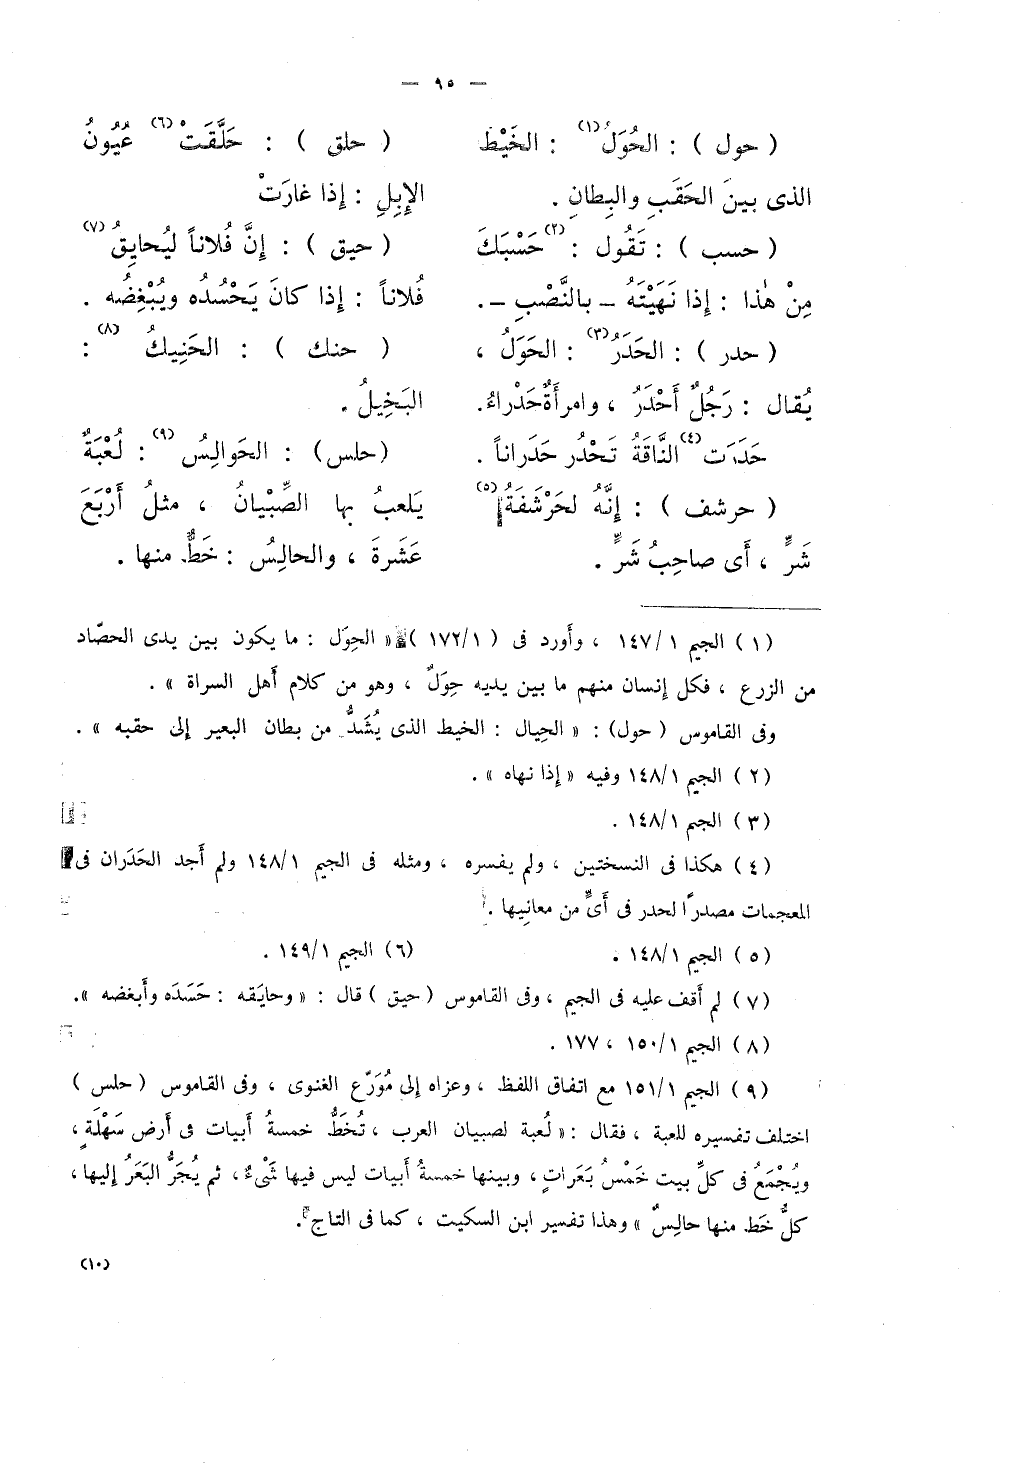 — ٩٥ —
( حول ) : الحُوَلُ(١) : الخَيْط
الذى بينَ الحَقَبِ والبِطانِ .
( حسب ) : تَقُول :(٢) حَسْبَكَ
مِنْ هٰذا : إذا نَهَيْتَهُ – بالنَّصْبِ –.
( حدر ) : الحَدَرُ(٣) : الحَوَلُ ،
يُقال : رَجُلٌ أَحْدَرُ ، وامرأَةٌ حَدْراءُ.
حَدَرَت(٤) النَّاقَةُ تَحْدُر حَدَراناً .
( حرشف ) : إِنَّهُ لحَرْشَفَةُ(٥)
شَرٍّ ، أَى صاحِبُ شَرٍّ .
( حلق ) : حَلَّقَتْ(٦) عُيُونُ
الإِبِلِ : إِذا غارَتْ
( حيق ) : إِنَّ فُلاناً لَيُحايِقُ(٧)
فُلاناً : إِذا كانَ يَحْسُدُه ويُبْغِضُه .
( حنك ) : الحَنِيكُ(٨) :
البَخِيلُ .
(حلس) : الحَوالِسُ(٩) : لُعْبَةٌ
يَلعبُ بها الصِّبْيانُ ، مثلُ أَرْبَعَ
عَشَرَةَ ، والحالِسُ : خَطٌّ منها .
(١) الجيم ١٤٧/١ ، وأورد فى ( ١٧٢/١ ) « الحِوَل : ما يكون بين يدى الحصّاد
من الزرع ، فكل إنسان منهم ما بين يديه حِوَلٌ ، وهو من كلام أهل السراة » .
وفى القاموس ( حول) : « الحِيال : الخيط الذى يُشَدُّ من بطان البعير إلى حقبه » .
(٢) الجيم ١٤٨/١ وفيه « إذا نهاه » .
(٣) الجيم ١٤٨/١ .
(٤) هكذا فى النسختين ، ولم يفسره ، ومثله فى الجيم ١٤٨/١ ولم أجد الحَدَران فى
المعجمات مصدرًا لحدر فى أىٍّ من معانيها .
(٥) الجيم ١٤٨/١ .
(٦) الجيم ١٤٩/١ .
(٧) لم أقف عليه فى الجيم ، وفى القاموس ( حيق ) قال : « وحايَقه : حَسَدَه وأبغضه ».
(٨) الجيم ١٥٠/١ ، ١٧٧ .
(٩) الجيم ١٥١/١ مع اتفاق اللفظ ، وعزاه إلى مُوَرّع الغنوى ، وفى القاموس ( حلس )
اختلف تفسيره للعبة ، فقال : « لُعبة لصبيان العرب ، تُخَطُّ خمسةُ أبيات فى أرض سَهْلَةٍ ،
ويُجْمَعُ فى كلِّ بيت خَمْسُ بَعَراتٍ ، وبينها خمسةُ أبيات ليس فيها شَىْءٌ ، ثم يُجَرُّ البَعَرُ إليها ،
كلُّ خَط منها حالِسٌ » وهذا تفسير ابن السكيت ، كما فى التاج .
(١٠)